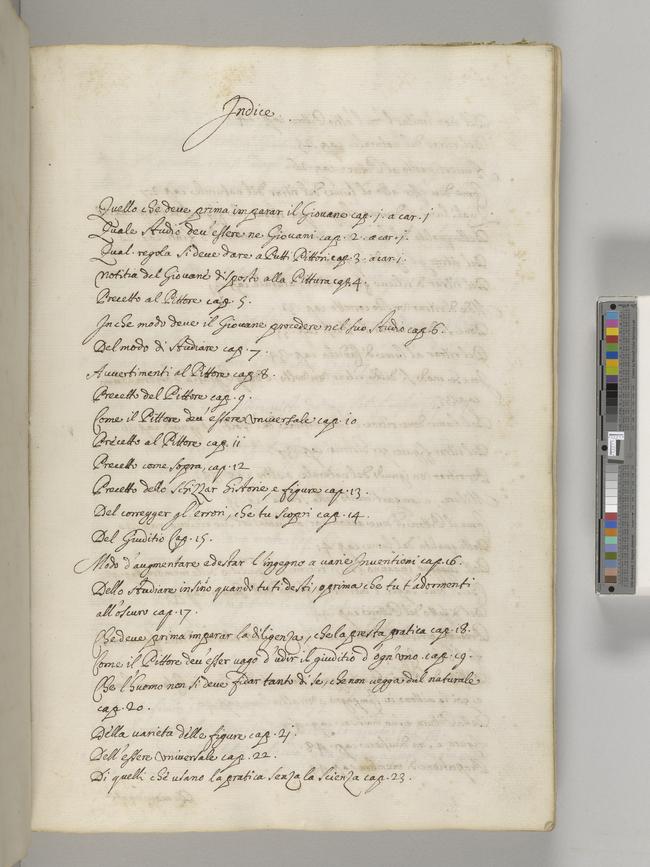 Indice.
Quello che deve prima imparar il Giovane cap. j. a car. j
Quale Studio deu'essere ne Giovani cap. 2. a car. j.
Qual regola si deve dare a Putti Pittori cap. 3. a car. j.
Notitia del Giovane disposto alla Pittura cap. 4.
Precetto al Pittore cap. 5.
In che modo deve il Giovane procedere nel suo Studio cap. 6.
Del modo di Studiare cap. 7.
Avvertimenti al Pittore cap. 8.
Precetto del Pittore cap. 9.
Come il Pittore deu'essere vniversale cap. 10
Precetto al Pittore cap. 11
Precetto come sopra, cap. 12
Precetto dello schizzar historie, e figure cap. 13.
Del corregger gl'errori, che tu scopri cap. 14.
Del Giuditio Cap. 15.
Modo d'augmentare e destar l'ingegno a varie Inventioni cap. 16.
Dello Studiare insino quando tu ti desti, o prima che tu t'adormenti
all'oscuro cap. 17.
Che deve prima imparar la diligenza, che la presta pratica cap. 18.
Come il Pittore deu'esser vago d'udir il giuditio d'ogn'vno. cap. 19.
Che l'huomo non si deve fidar tanto di se, che non vegga dal naturale
cap. 20.
Della varietà delle figure cap. 21.
Dell'essere vniversale cap. 22.
Di quelli che usano la pratica senza la scienza cap. 23.